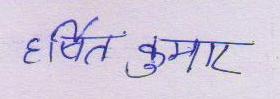 हर्षित कुमार